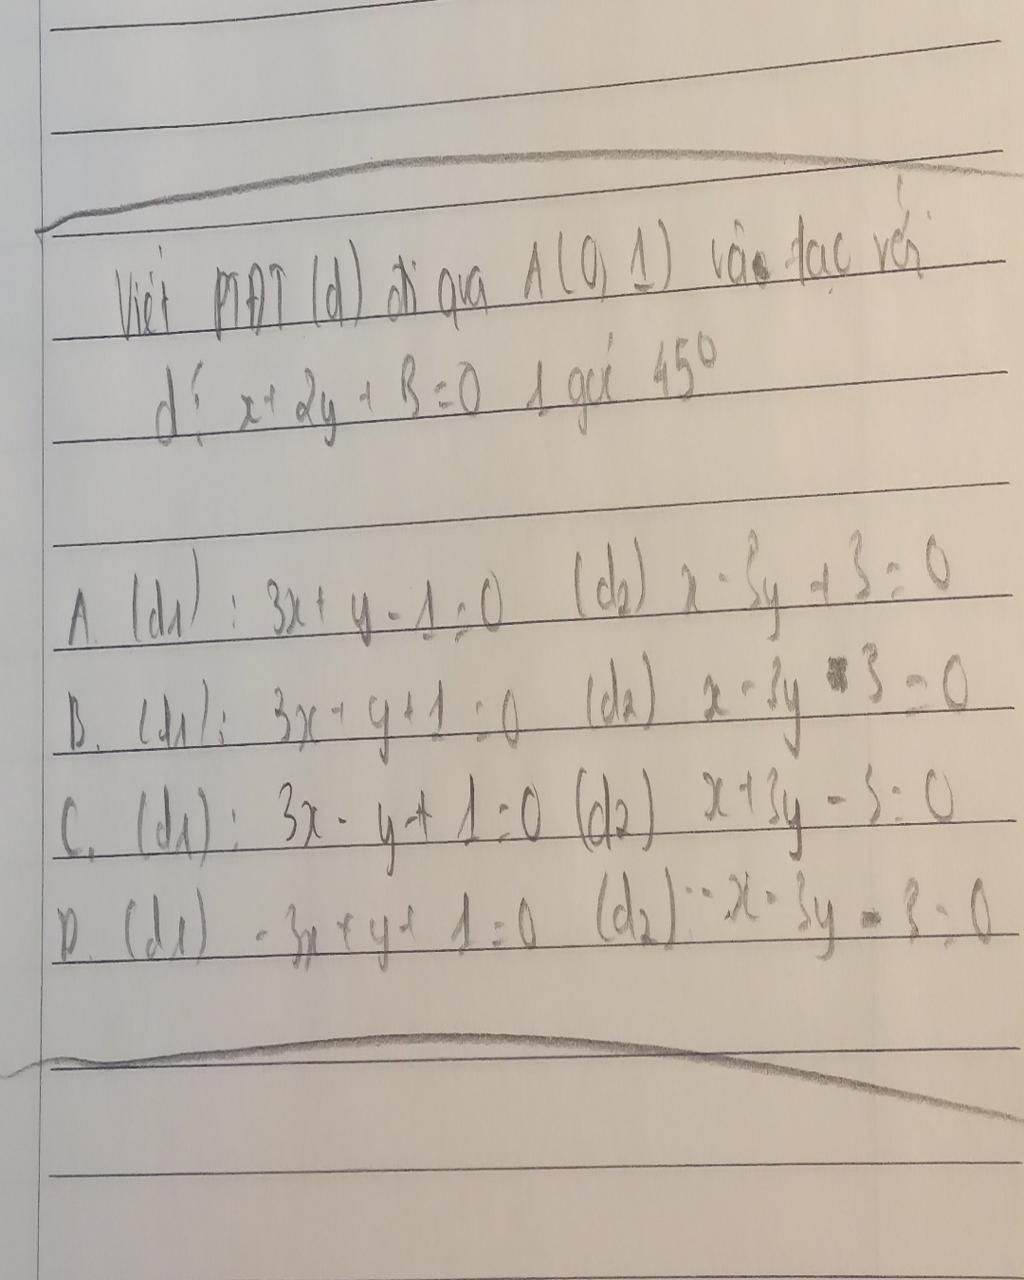 Viết PTĐT (d) đi qua A(0, 1) và tạo với
d': x + 2y + 3 = 0 1 góc 45°
A. (d1) : 3x + y - 1 = 0 (d2) x - 3y + 3 = 0
B. (d1) : 3x + y + 1 = 0 (d2) x - 3y - 3 = 0
C. (d1) : 3x - y + 1 = 0 (d2) x + 3y - 3 = 0
D. (d1) - 3x + y + 1 = 0 (d2) : - x - 3y - 3 = 0